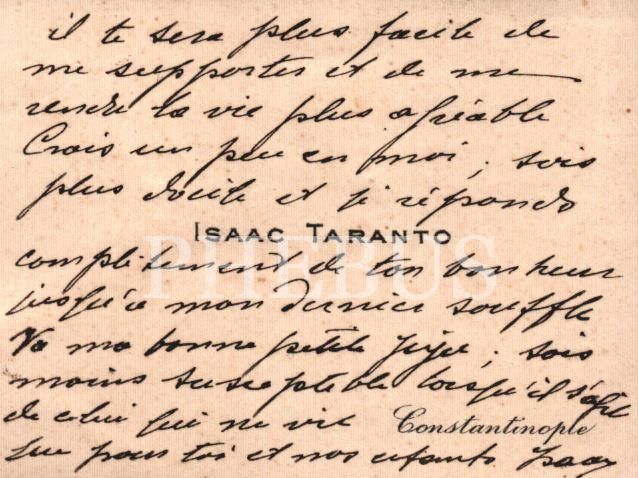 il te sera plus facile de
me supporter et de me
rendre la vie plus agréable
Crois un peu en moi ; sois
plus docile et je réponds
ISAAC TARANTO
PHEBUS
complètement de ton bonheur
jusqu'à mon dernier souffle
Va ma bonne petite ; sois
moins susceptible lorsqu'il s'agit
de celui qui ne vit
Constantinople
que pour toi et nos enfants Isaac